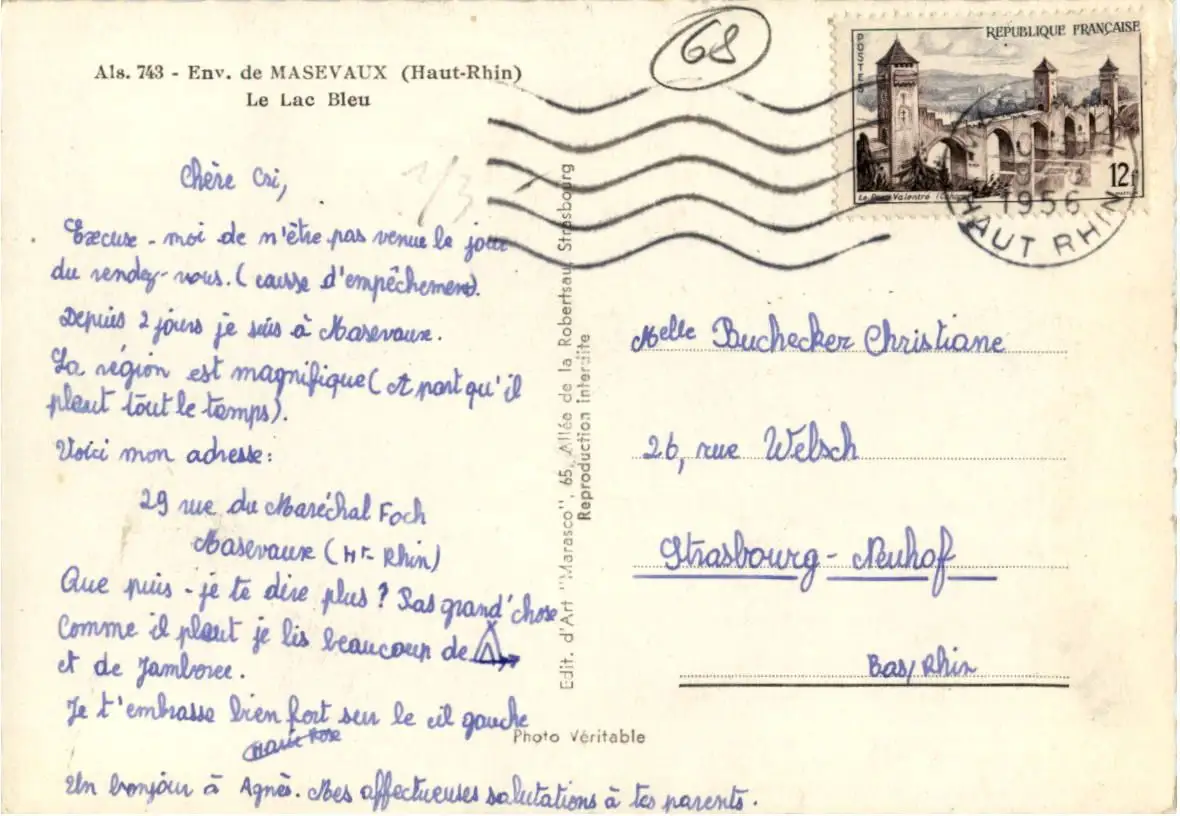 Als. 743 - Env. de MASEVAUX (Haut-Rhin)
Le Lac Bleu
68
1/3
RÉPUBLIQUE FRANÇAISE
POSTES
12f
Le Pont Valentré (Cahors)
1956
HAUT RHIN
Chère Cri,
Excuse-moi de n'être pas venue le jour
du rendez-vous. (causse d'empêchement).
Depuis 2 jours je suis à Masevaux.
La région est magnifique (A part qu'il
pleut tout le temps).
Voici mon adresse:
29 rue du Maréchal Foch
Masevaux (Ht-Rhin)
Que puis-je te dire plus? Pas grand'chose
Comme il pleut je lis beaucoup de
et de Jamboree.
Je t'embrasse bien fort sur le œil gauche
Marie Rose
Un bonjour à Agnès. Mes affectueuses salutations à tes parents.
Edit. d'Art "Marasco", 65, Allée de la Robertsau, Strasbourg
Reproduction interdite
Photo Véritable
Melle Buchecker Christiane
26, rue Welsch
Strasbourg-Neuhof
Bas/Rhin